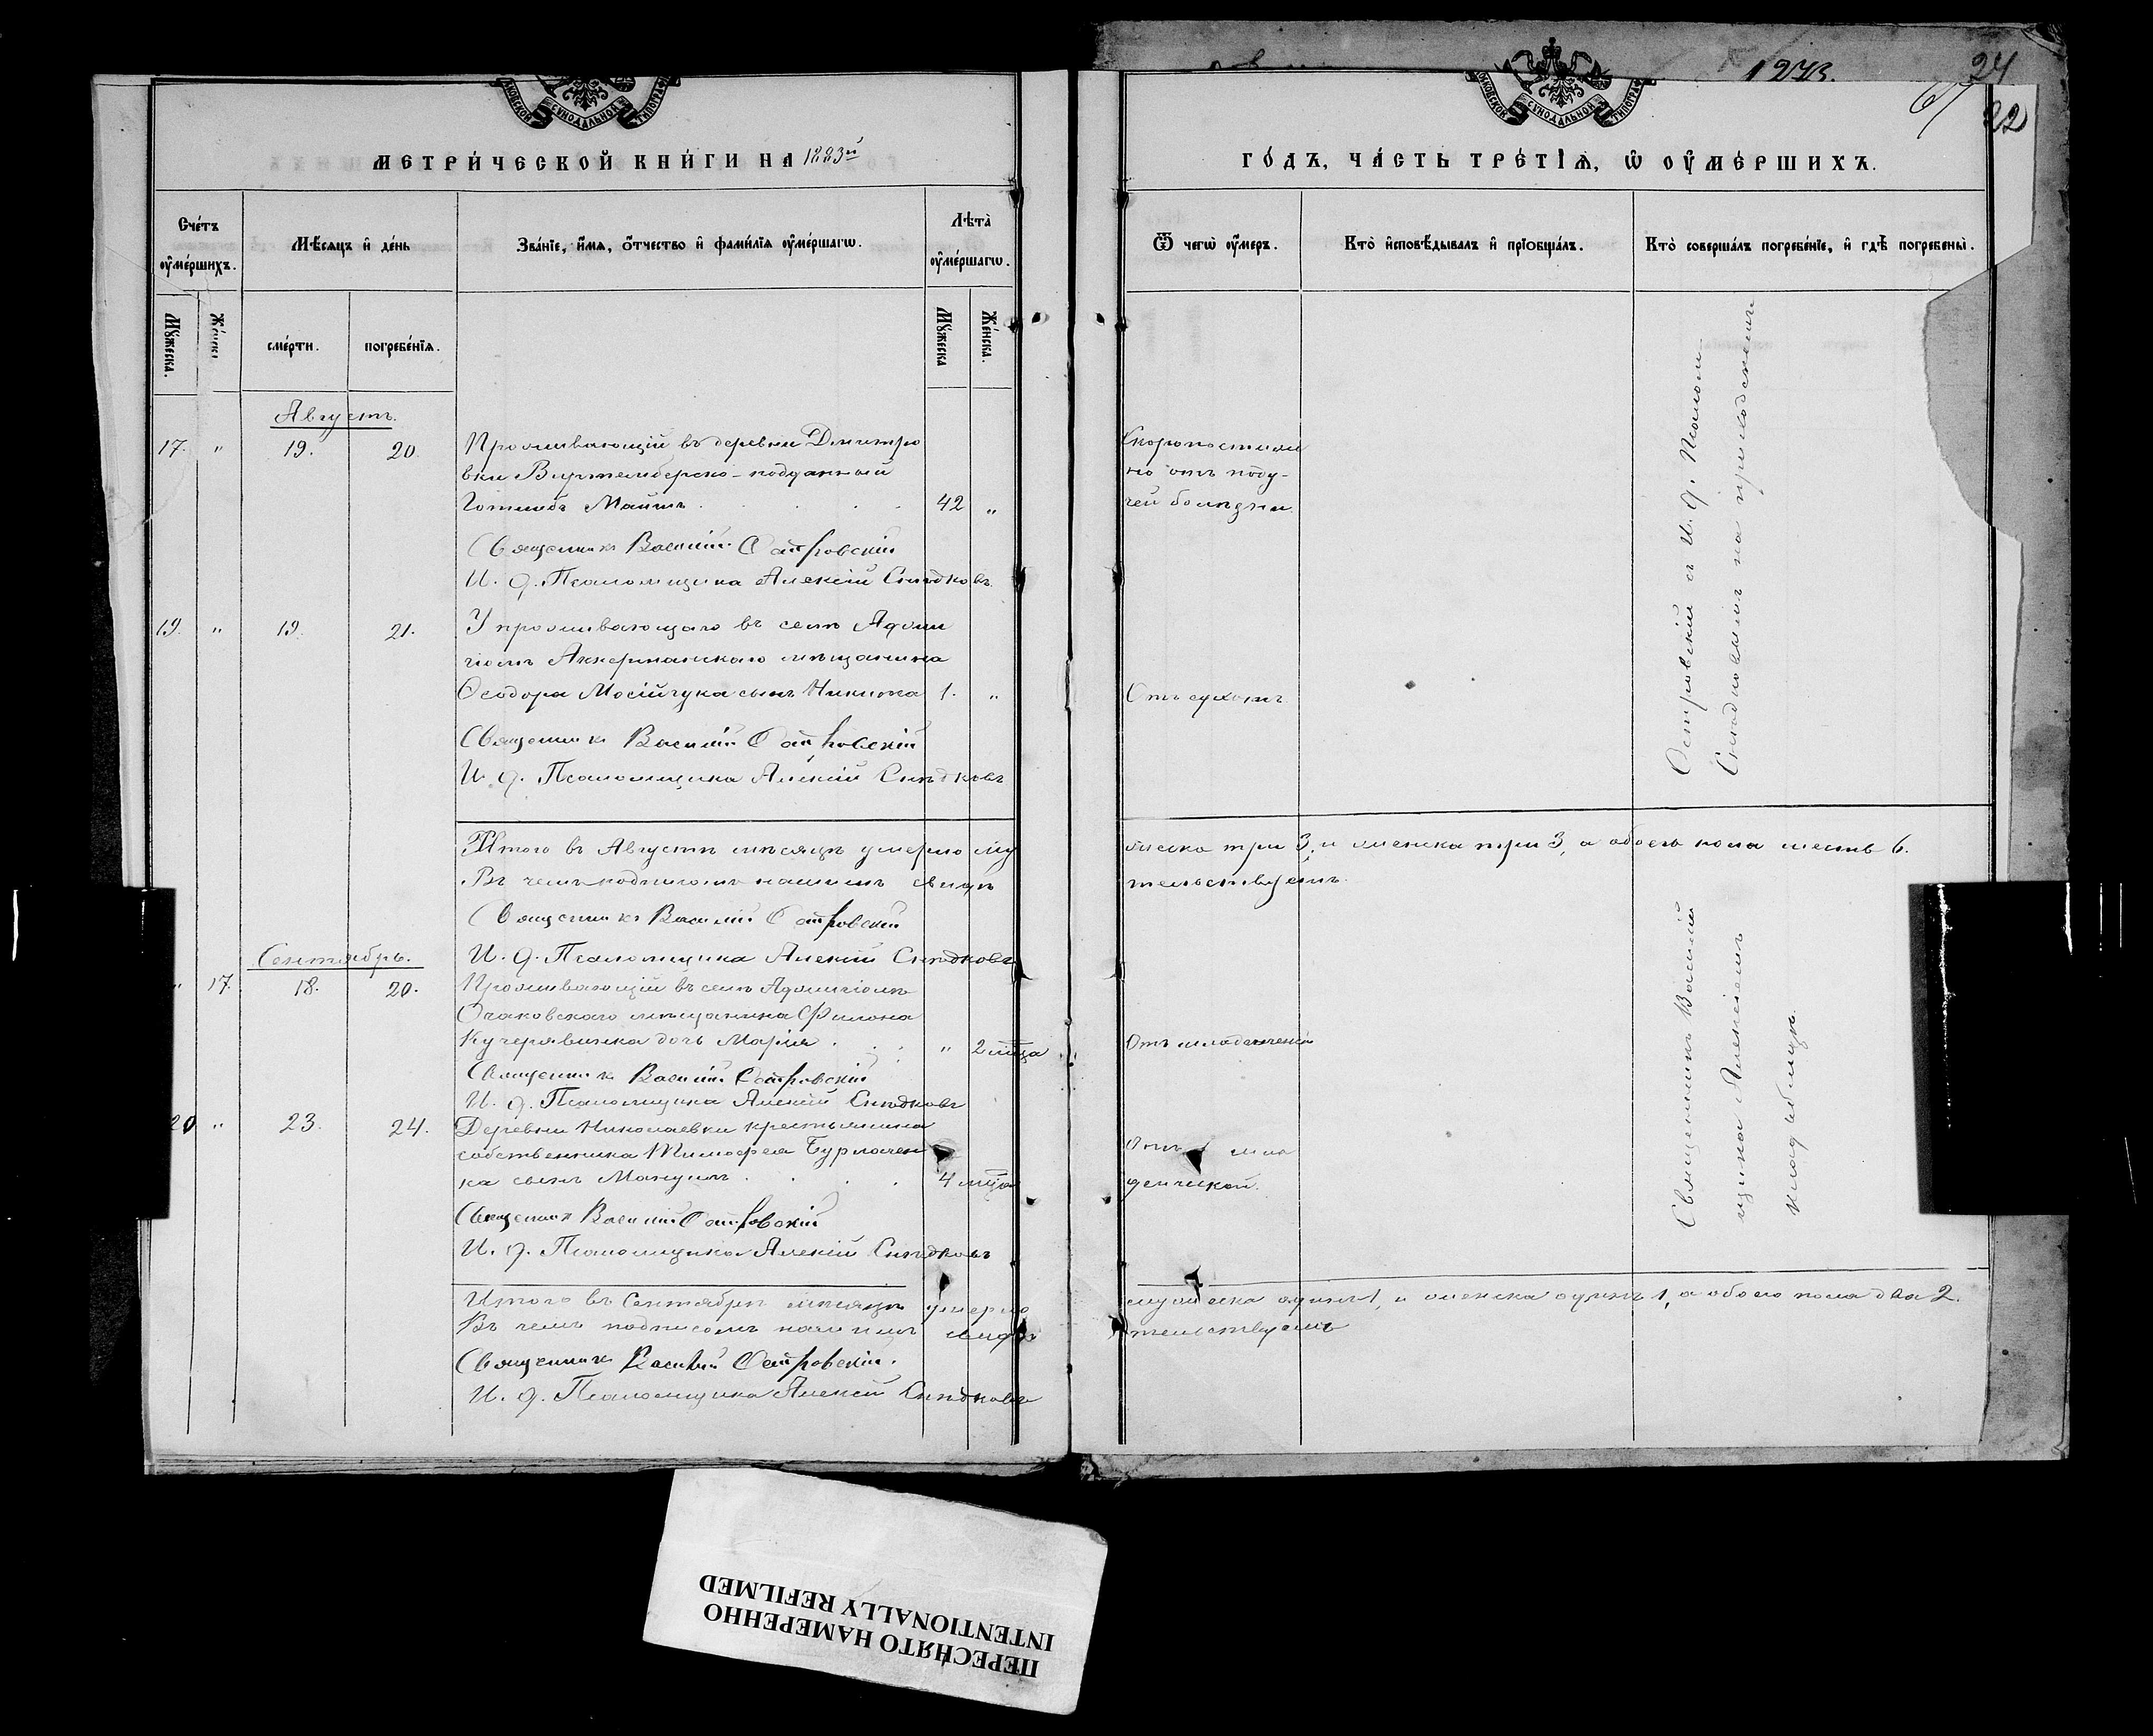 1273.
24
22
МОСКОВСКОЙ СѴНОДАЛЬНОЙ ТИПОГРАФ
МЕТРИ́ЧЕСКОЙ КНИ́ГИ НА 1883й
Сче́тъ ᲂу҆ме́ршихъ.
Мѣ́сяцъ и҆ де́нь
Зва́нїе, и҆́мѧ, ѻ҆́тчество и҆ фами́лїѧ ᲂу҆ме́ршагѡ.
Лѣ̀та ᲂу҆ме́ршагѡ.
Мꙋ́жеска.
Же́нска
сме́рти.
погребе́нїѧ.
Мꙋ́жеска
Же́нска.
Августъ.
17. " 19. 20. Проживающій въ деревни Дмитро
вки Виртембергско-подданный
Готлибъ Майтъ 42 "
Священникъ Василій Островскій
И. д. Псаломщика Алексій Снѣдковъ.
19. " 19. 21. У проживающаго въ селѣ Аджи
гіомъ Аккерманскаго мѣщанина
Ѳеодора Мосійчука сынъ Никита 1. "
Священникъ Василій Островскій
И. д. Псаломщика Алексій Снѣдковъ
Итого въ Августѣ мѣсяцѣ умерло му
Въ чемъ подписомъ нашимъ свидѣ
Священникъ Василій Островскій
И. д. Псаломщика Алексій Снѣдковъ
Сентябрь.
" 17. 18. 20. Проживающій въ селѣ Аджигіомъ
Очаковскаго мѣщанина Филона
Кучерявенка дочь Марія " 2 мѣца
Священникъ Василій Островскій
И. д. Псаломщика Алексій Снѣдковъ
20 " 23. 24. Деревни Николаевки крестьянина
собственника Тимофея Бурлачен
ка сынъ 4 мѣца
Священникъ Василій Островскій
И. д. Псаломщика Алексій Снѣдковъ
Итого въ Сентябрѣ мѣсяцѣ умерло
Въ чемъ подписомъ нашимъ свидѣ
Священникъ Василій Островскій.
И. д. Псаломщика Алексій Снѣдковъ
МОСКОВСКОЙ СѴНОДАЛЬНОЙ ТИПОГРАФ
ГО́ДЪ, ЧА́СТЬ ТРЕ́ТІѦ, Ѡ҆ ОУ҆МЕ́РШИХЪ.
Ѿ чегѡ̀ ᲂу҆́меръ.
Кто̀ и҆сповѣ́дывалъ и҆ прїѡбща́лъ.
Кто̀ соверша́лъ погребе́нїе, и҆ гдѣ̀ погребены̀.
Скоропостижно
но отъ паду-
чей болѣзни.
Отъ сухотъ.
Островскій съ И. д. Псалом-
Снѣдковымъ на приходскомъ
жеска три 3, и женска три 3, а обоего пола шесть 6.
тельствуемъ.
Отъ младенческой
Отъ мла
денческой.
Священникъ Василій
щика Алексіемъ
кладбищѣ.
мужеска одинъ 1, и женска одинъ 1, а обоего пола два 2.
тельствуемъ
ПЕРЕСНЯТО НАМЕРЕННО
INTENTIONALLY REFILMED